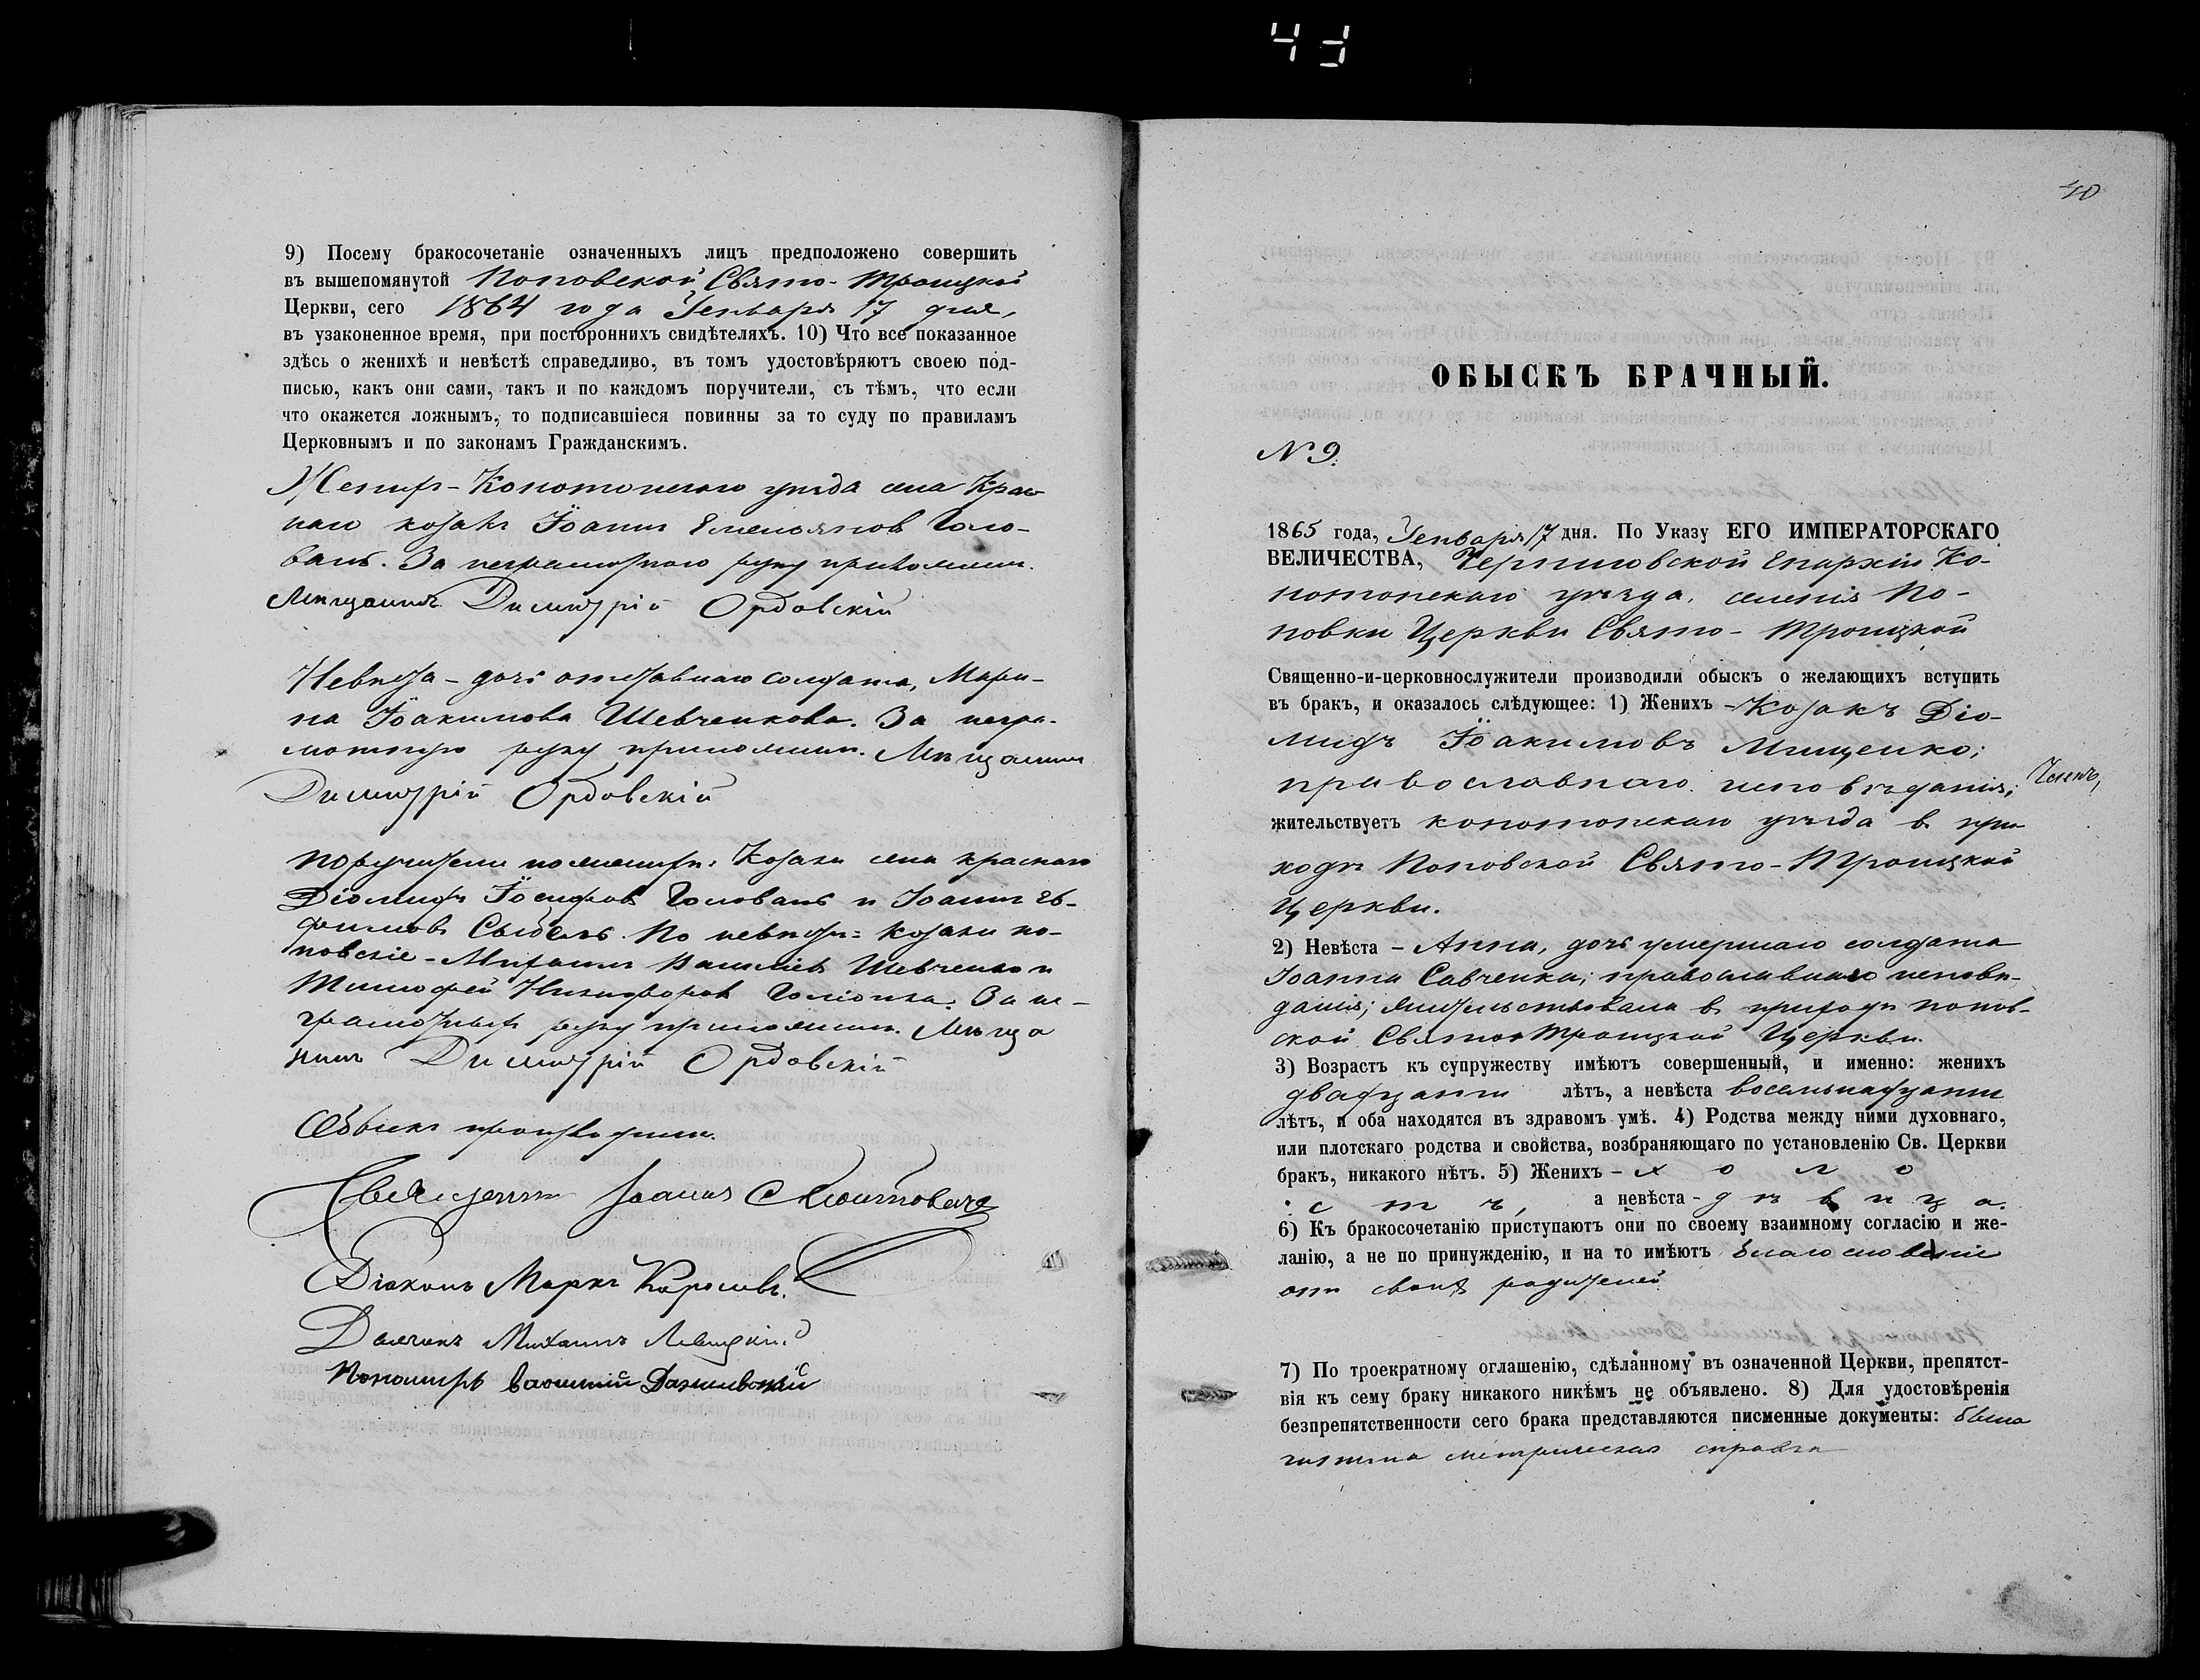 43
9) Посему бракосочетаніе означенныхъ лицъ предположено совершить
въ вышепомянутой Поповской Свято-Троицкой
Церкви, сего 1864 года Генваря 17 дня,
въ узаконенное время, при постороннихъ свидѣтеляхъ. 10) Что все показанное
здѣсь о женихѣ и невѣстѣ справедливо, въ томъ удостовѣряютъ своею под-
писью, какъ они сами, такъ и по каждомъ поручители, съ тѣмъ, что если
что окажется ложнымъ, то подписавшіеся повинны за то суду по правиламъ
Церковнымъ и по законамъ Гражданскимъ.
Женихъ - Конотопскаго уѣзда села Крас-
наго козакъ Іоаннъ Емельяновъ Голо-
ванъ. За неграмотнаго руку приложилъ
Мѣщанинъ Димитрій Ордовскій
Невѣста - дочь отставнаго солдата, Мари-
на Іоакимова Шевченкова. За негра-
мотную руку приложилъ. Мѣщанинъ
Димитрій Ордовскій
Поручители по женихѣ: Козаки села Краснаго
Діомидъ Іосифовъ Голованъ и Іоаннъ Ев-
фимовъ По невѣстѣ: козаки по-
повскіе - Михаилъ Васильевъ Шевченко и
Тимофей Никифоровъ За не-
грамотныхъ руку приложилъ. Мѣща
нинъ Димитрій Ордовскій
Обыскъ производили.
Священникъ Іоаннъ
Діаконъ Маркъ
Дьячокъ Михаилъ Левицкій
Пономарь Василій
40
ОБЫСКЪ БРАЧНЫЙ.
N 9.
1865 года, Генваря 17 дня. По Указу ЕГО ИМПЕРАТОРСКАГО
ВЕЛИЧЕСТВА, Черниговской Епархіи Ко-
нотопскаго уѣзда, селенія По-
повки Церкви Свято-Троицкой
Священно-и-церковнослужители производили обыскъ о желающихъ вступить
въ бракъ, и оказалось слѣдующее: 1) Женихъ - Козакъ Діо-
мидъ Іоакимовъ Мищенко;
православнаго исповѣданія;
жительствуетъ конотопскаго уѣзда въ при-
ходѣ Поповской Свято-Троицкой
Церкви.
2) Невѣста - Анна, дочь умершаго солдата
Іоанна Савченка; православнаго исповѣ-
данія; жительствовала въ приходѣ Попов-
ской Свято-Троицкой Церкви.
3) Возрастъ къ супружеству имѣютъ совершенный, и именно: женихъ
двадцати лѣтъ, а невѣста восемьнадцати
лѣтъ, и оба находятся въ здравомъ умѣ. 4) Родства между ними духовнаго,
или плотскаго родства и свойства, возбраняющаго по установленію Св. Церкви
бракъ, никакого нѣтъ. 5) Женихъ - холо
стъ, а невѣста - дѣвица.
6) Къ бракосочетанію приступаютъ они по своему взаимному согласію и же-
ланію, а не по принужденію, и на то имѣютъ благословеніе
отъ своихъ родителей
7) По троекратному оглашенію, сдѣланному въ означенной Церкви, препятст-
вія къ сему браку никакого никѣмъ не объявлено. 8) Для удостовѣренія
безпрепятственности сего брака представляются писменные документы: была
чинена метрическая справка